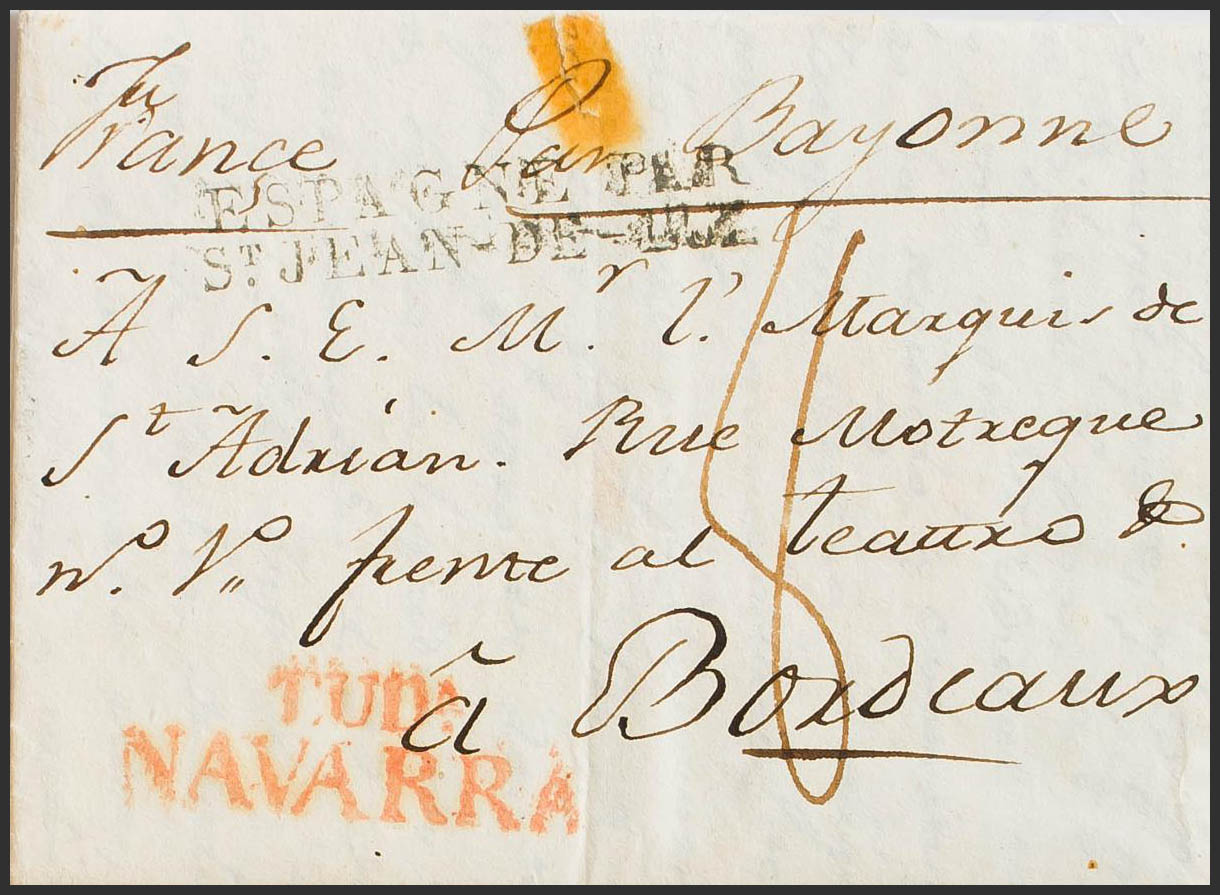 France Par Bayonne
ESPAGNE PAR
St. JEAN-DE-LUZ
A S. E. Mr. l'. Marquis de
St Adrián. Rue Motreque
no. Vo frente al teattro &.
TUDA
â Bordeaux
NAVARRA